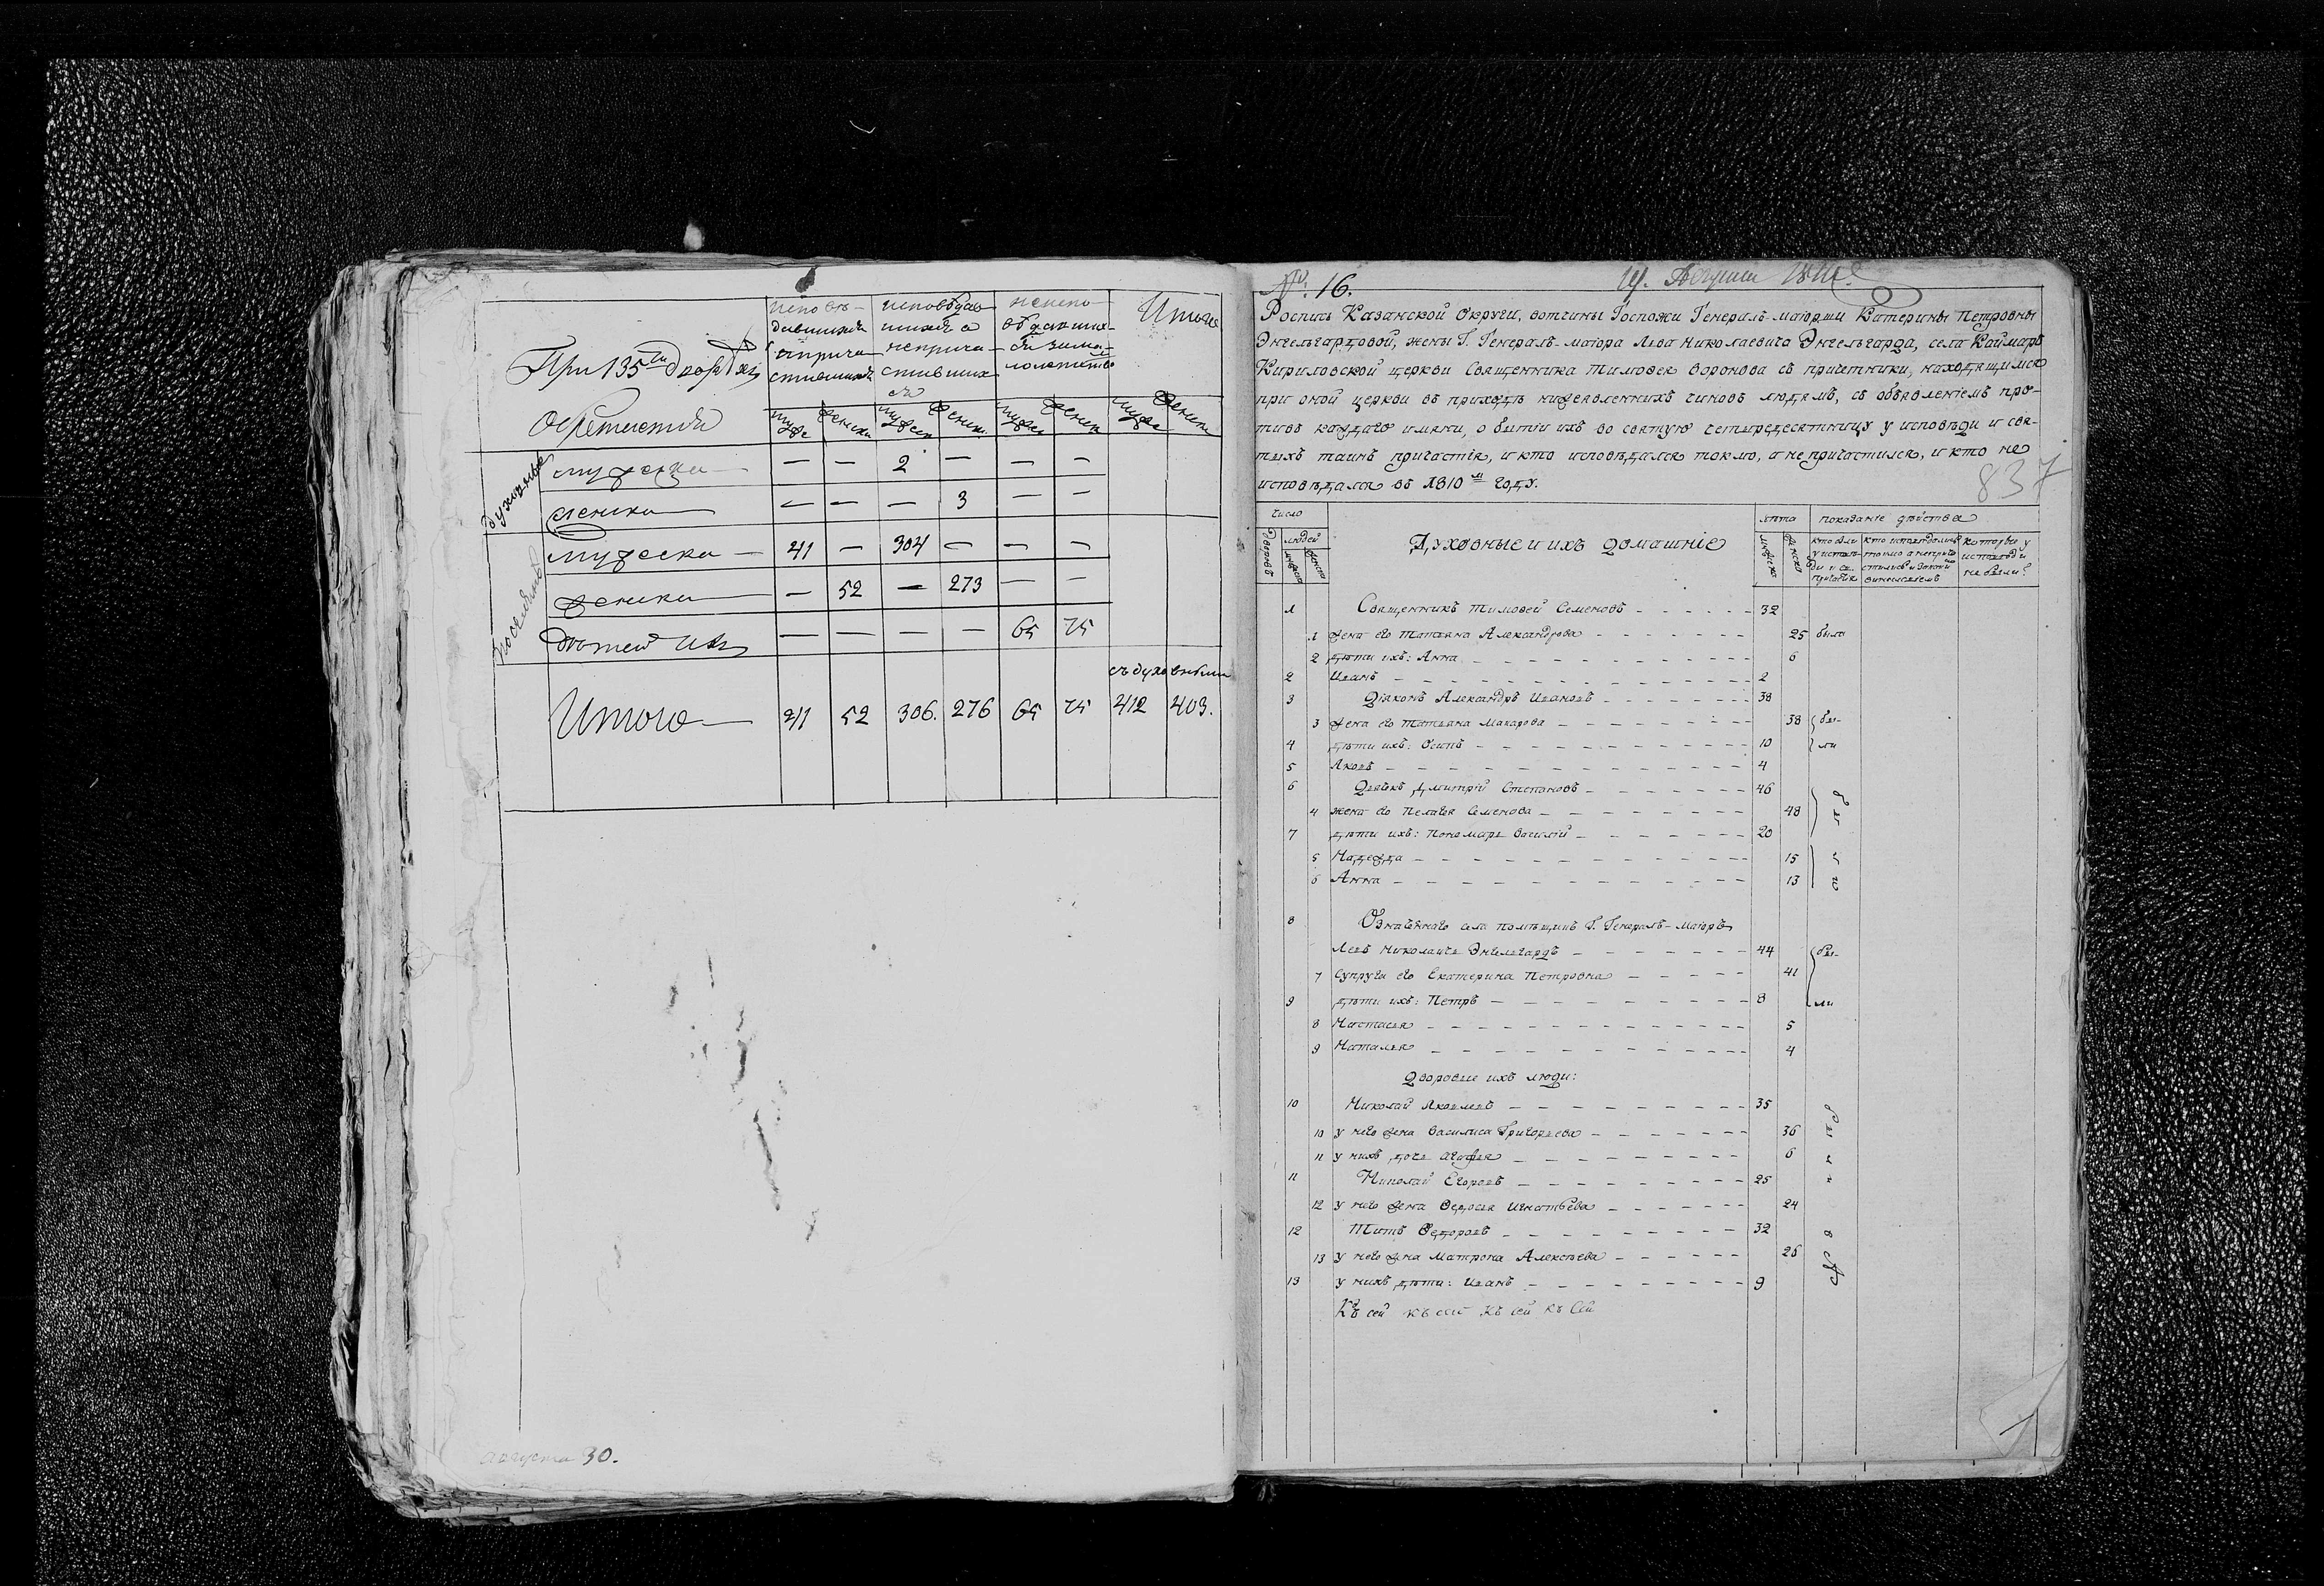 При 135ти дворѣхъ
Обретается
исповѣ-
давшихся
и прича-
стившихся
исповѣдав-
шихся а
неприча-
стивших-
ся
неиспо-
вѣдавших-
ся за ма-
лолетство
Итого
мужс женски мужеск женски мужес женск мужес женски
духовные
мужеска — — 2 — — —
женска — — — 3 — —
мужеска 41 — 304 — — —
женска — 52 — 273 — —
детей ихъ — — — — 65 75
съ духовными
Итого 41 52 306. 276 65 75 412 403.
августа 30.
№ 16.
837
Роспись Казанской Округи, вотчины Госпожи Генералъ-маіорши Катерины Петровны
Энгельгардовой, жены Г. Генералъ-маіора Льва Николаевича Энгельгарда, села Каймаръ
Кириловской церкви Священника Тимофея Воронова съ причетники, находящимся
при оной церкви въ приходѣ нижеявленныхъ чиновъ людямъ, съ объявленіемъ про-
тивъ каждаго имяни, о бытіи ихъ во святую четыредесятницу у исповѣди и свя-
тыхъ таинъ причастія, и кто исповѣдался токмо, а не причастился, и кто не
исповѣдался въ 1810м году.
число
дворовъ
людей
мужеска
женска
Духовные и ихъ домашніе
лѣта
мужеска
женска
показаніе действа
кто были
у исповѣ-
ди и св.
причастія
которыя у
исповеди
не были?
1 Священникъ Тимофей Семеновъ 32
1 жена его Татьяна Александрова 25 были
2 дѣти ихъ: Анна 6
2 Иванъ 2
3 Діяконъ Александръ Ивановъ 38
3 жена его Татьяна Макарова 38 бы-
4 дѣти ихъ: Осипъ 10 ли
5 Яковъ 4
6 Дьячекъ Дмитрій Степановъ 46
4 жена его Пелагея Семенова 48
7 дѣти ихъ: Пономарь Василій 20
5 Надежда 15
6 Анна 13
8 Означеннаго села помѣщикъ Г. Генералъ-Маіоръ
Левъ Николаичь Энгельгардъ 44 бы-
7 Супруга его Екатерина Петровна 41
9 дѣти ихъ: Петръ 8 ли
8 Настасья 5
9 Наталья 4
Дворовые ихъ люди:
10 Николай Яковлевъ 35
10 у него жена Василиса Григорьева 36
11 у нихъ дочь Агафья 6
11 Николай Егоровъ 25
12 у него жена Федосья Игнатьева 24
12 Титъ Федоровъ 32
13 у него жена Матрона Алексѣева 26
13 у нихъ дѣти: Иванъ 9
Къ сей къ сей къ сей къ Сей